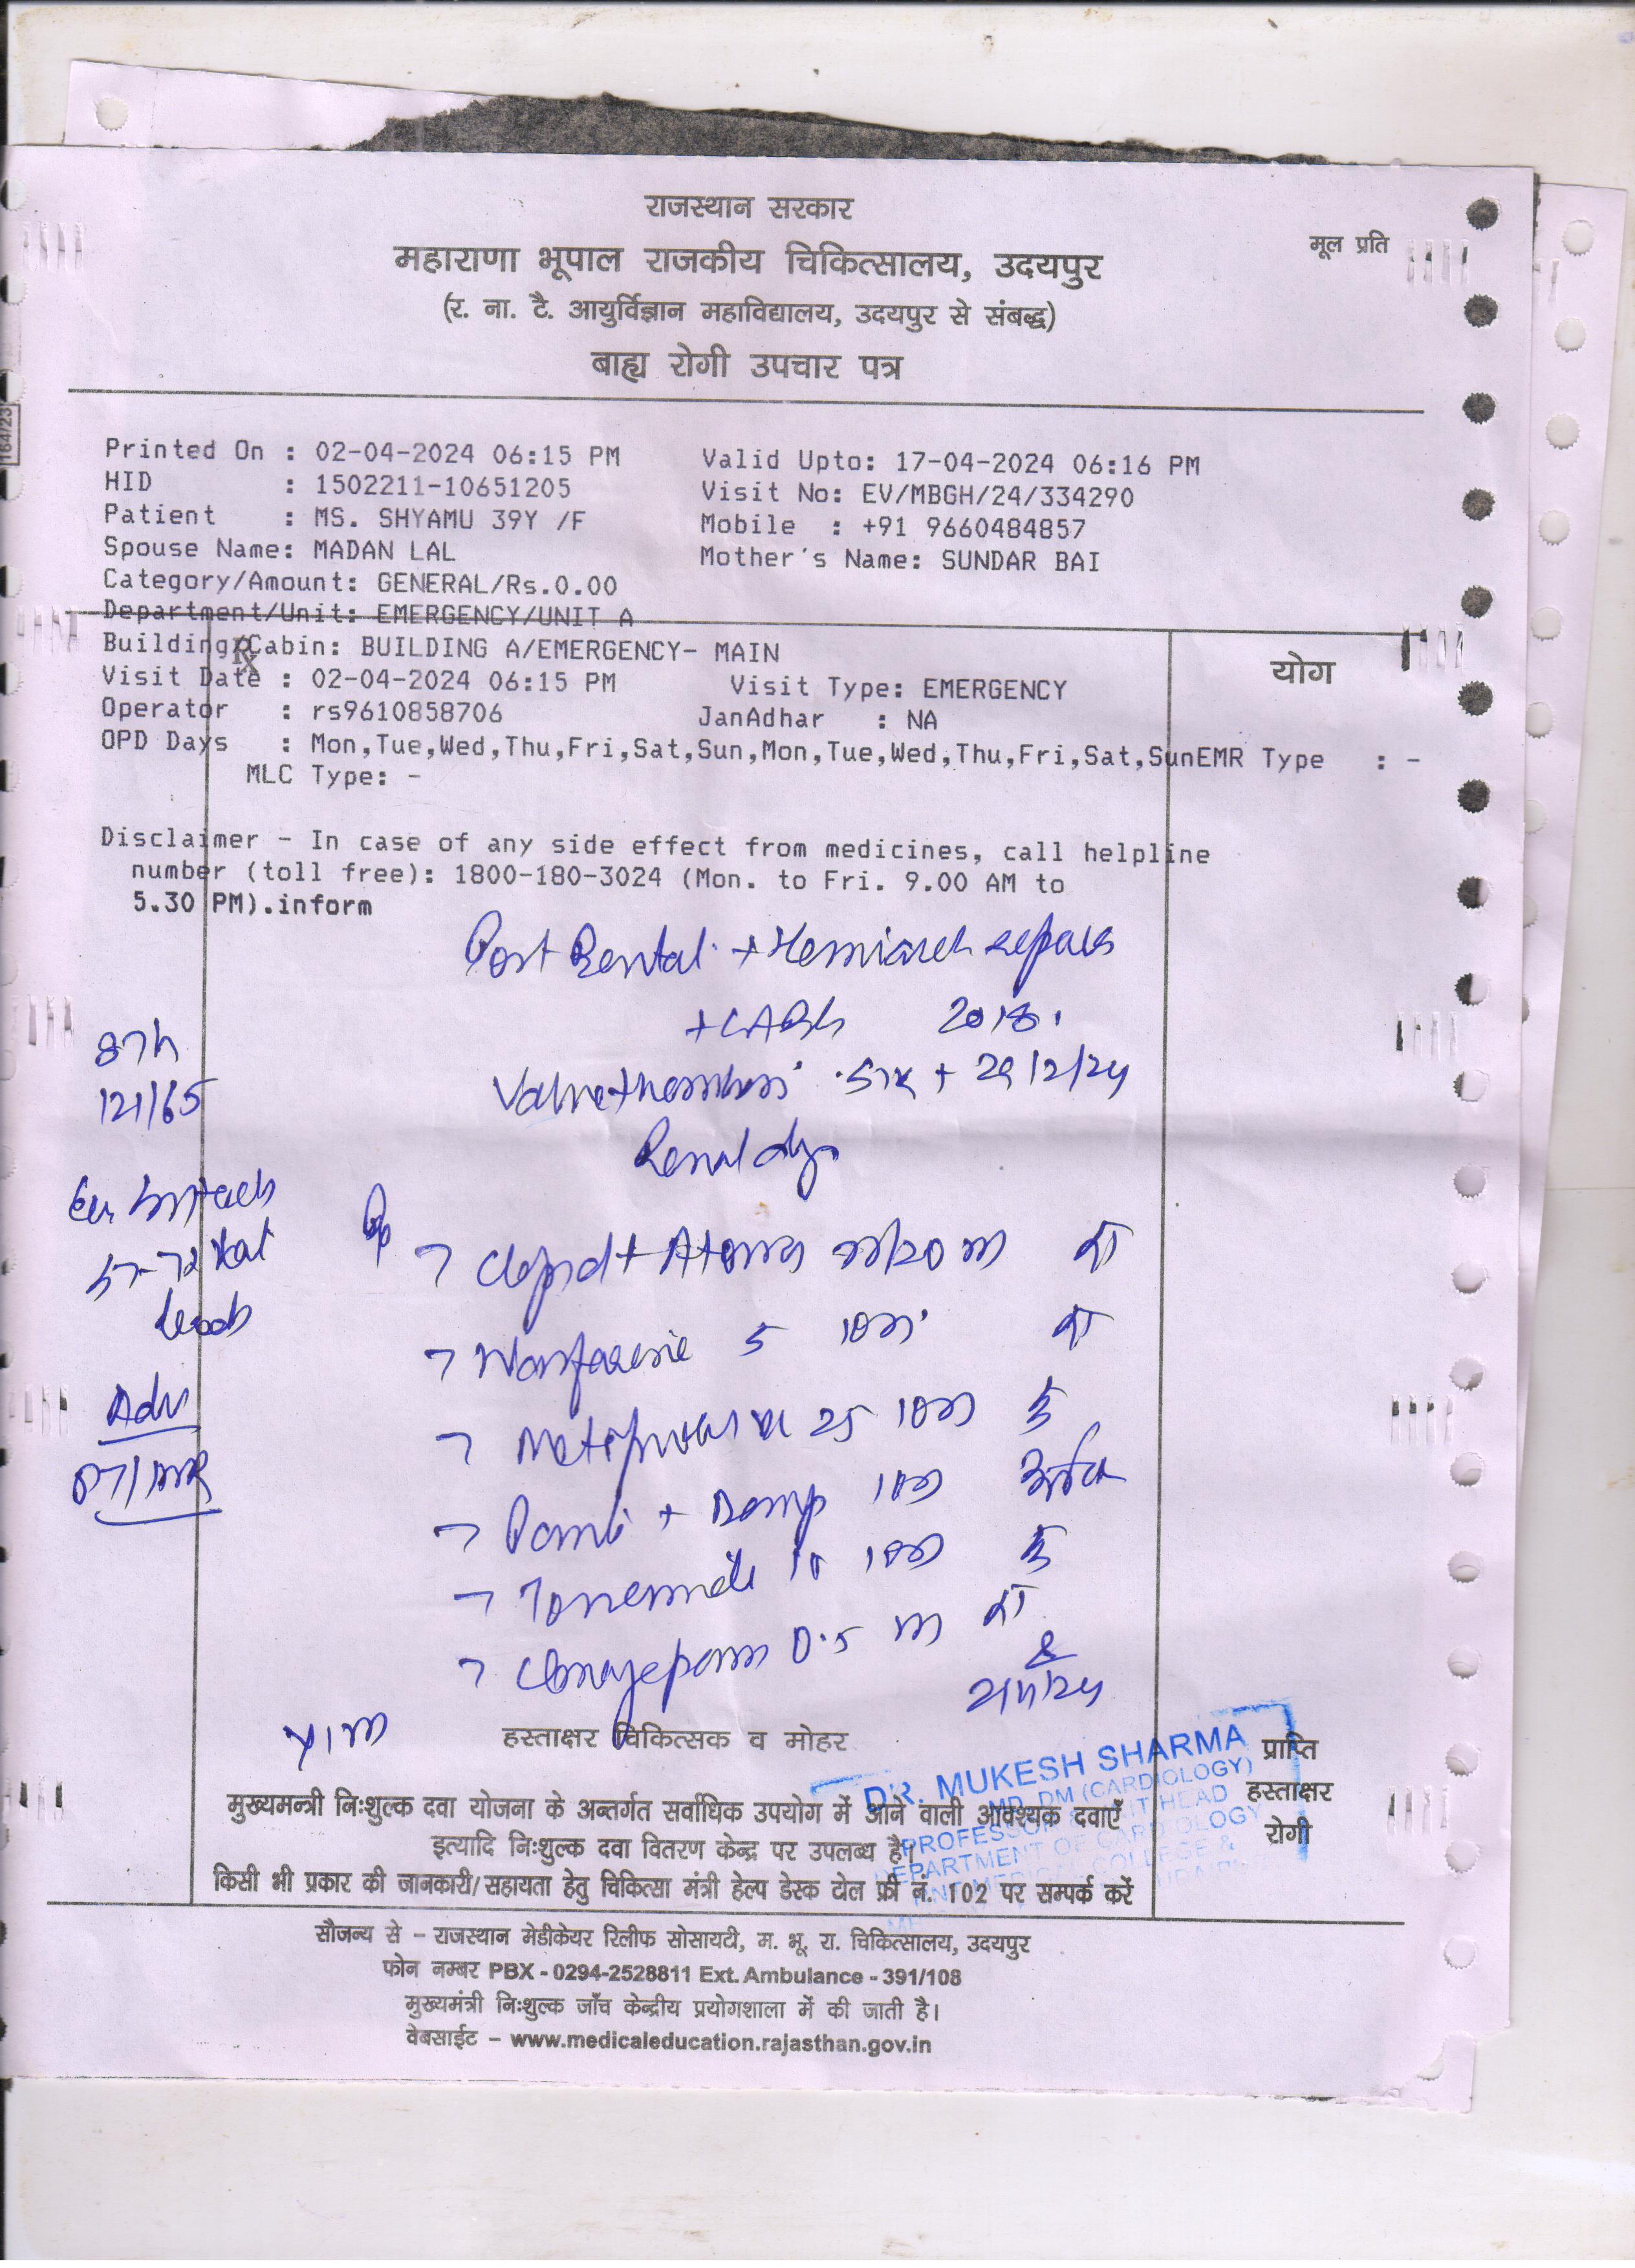 राजस्थान सरकार
मूल प्रति
महाराणा भूपाल राजकीय चिकित्सालय, उदयपुर
(र. ना. टै. आयुर्विज्ञान महाविद्यालय, उदयपुर से संबद्ध)
बाह्य रोगी उपचार पत्र
164/23
Printed On : 02-04-2024 06:15 PM Valid Upto: 17-04-2024 06:16 PM
HID : 1502211-10651205 Visit No: EV/MBGH/24/334290
Patient : MS. SHYAMU 39Y /F Mobile : +91 9660484857
Spouse Name: MADAN LAL Mother's Name: SUNDAR BAI
Category/Amount: GENERAL/Rs.0.00
Department/Unit: EMERGENCY/UNIT A
Building/Cabin: BUILDING A/EMERGENCY- MAIN
योग
Visit Date : 02-04-2024 06:15 PM Visit Type: EMERGENCY
Operator : rs9610858706 JanAdhar : NA
OPD Days : Mon,Tue,Wed,Thu,Fri,Sat,Sun,Mon,Tue,Wed,Thu,Fri,Sat,SunEMR Type : -
MLC Type: -
Disclaimer - In case of any side effect from medicines, call helpline
number (toll free): 1800-180-3024 (Mon. to Fri. 9.00 AM to
5.30 PM).inform
Post Bental + Hemiarch repair
+ CABG 2018.
121/65
29/2/24
Renal dys
Clopid + Atorva
Warfarine 5
25
Adv
PT/INR
+ Domp
10
0.5
हस्ताक्षर चिकित्सक व मोहर
DR. MUKESH SHARMA
MD, DM (CARDIOLOGY)
PROFESSOR & UNIT HEAD
DEPARTMENT OF CARDIOLOGY
प्राप्ति
हस्ताक्षर
रोगी
मुख्यमन्त्री निःशुल्क दवा योजना के अन्तर्गत सर्वाधिक उपयोग में आने वाली आवश्यक दवाएँ
इत्यादि निःशुल्क दवा वितरण केन्द्र पर उपलब्ध है।
किसी भी प्रकार की जानकारी/सहायता हेतु चिकित्सा मंत्री हेल्प डेस्क टोल फ्री नं. 102 पर सम्पर्क करें
सौजन्य से - राजस्थान मेडीकेयर रिलीफ सोसायटी, म. भू. रा. चिकित्सालय, उदयपुर
फोन नम्बर PBX - 0294-2528811 Ext. Ambulance - 391/108
मुख्यमंत्री निःशुल्क जाँच केन्द्रीय प्रयोगशाला में की जाती है।
वेबसाईट - www.medicaleducation.rajasthan.gov.in